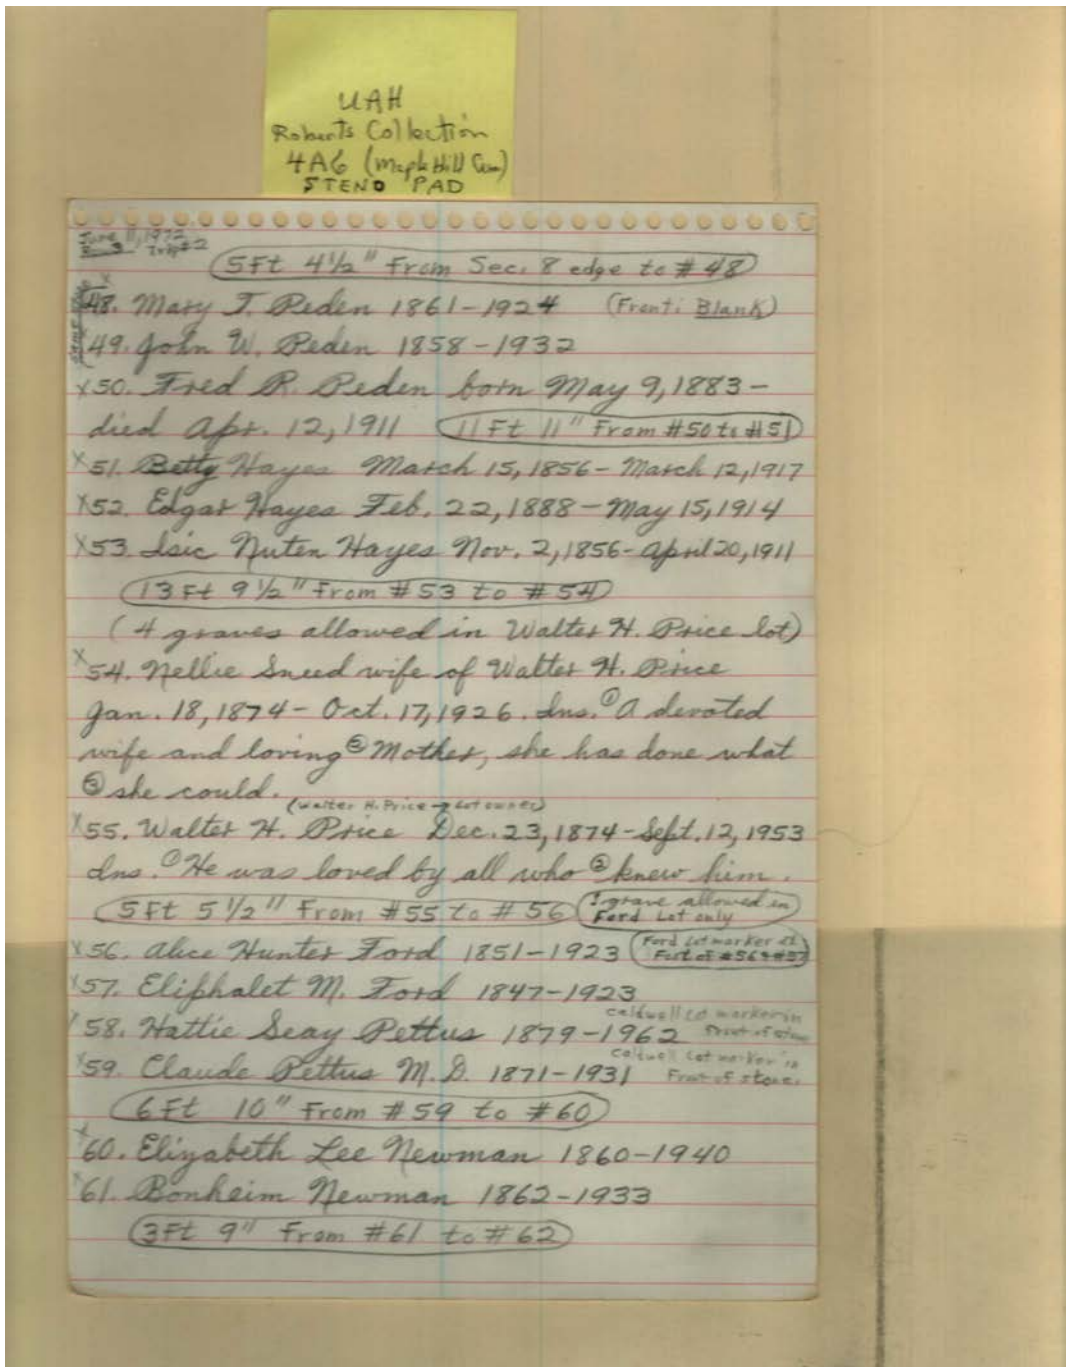 UAH
Roberts Collection
4A6 (Maple Hill Cem)
STENO PAD
June 11, 1972
Trip #2
5Ft 4½" From Sec. 8 edge to #48
x48. Mary T. Peden 1861-1924 (Front: Blank)
49. John W. Peden 1858-1932
x50. Fred R. Peden born May 9, 1883-
died Apr. 12, 1911 11Ft 11" From #50 to #51
x51. Betty Hayes March 15, 1856-March 12, 1917
x52. Edgar Hayes Feb. 22, 1888-May 15, 1914
x53. Isic Nuten Hayes Nov. 2, 1856-April 20, 1911
13Ft 9½" From #53 to #54
(4 graves allowed in Walter H. Price lot)
x54. Nellie Sneed wife of Walter H. Price
Jan. 18, 1874-Oct. 17, 1926. Ins. ① A devoted
wife and loving ② Mother, she has done what
③ she could.
(Walter H. Price → Lot owner)
x55. Walter H. Price Dec. 23, 1874-Sept. 12, 1953
Ins. ① He was loved by all who ② knew him.
5Ft 5½" From #55 to #56 1 grave allowed in
Ford Lot only
x56. Alice Hunter Ford 1851-1923 Ford Lot marker at
Foot of #56+#57
x57. Eliphalet M. Ford 1847-1923
Caldwell Lot marker in
58. Hattie Seay Pettus 1879-1962 Front of stone
Caldwell Lot marker in
x59. Claude Pettus M.D. 1871-1931 Front of stone.
6Ft 10" From #59 to #60
x60. Elizabeth Lee Newman 1860-1940
x61. Bonheim Newman 1862-1933
3Ft 9" From #61 to #62